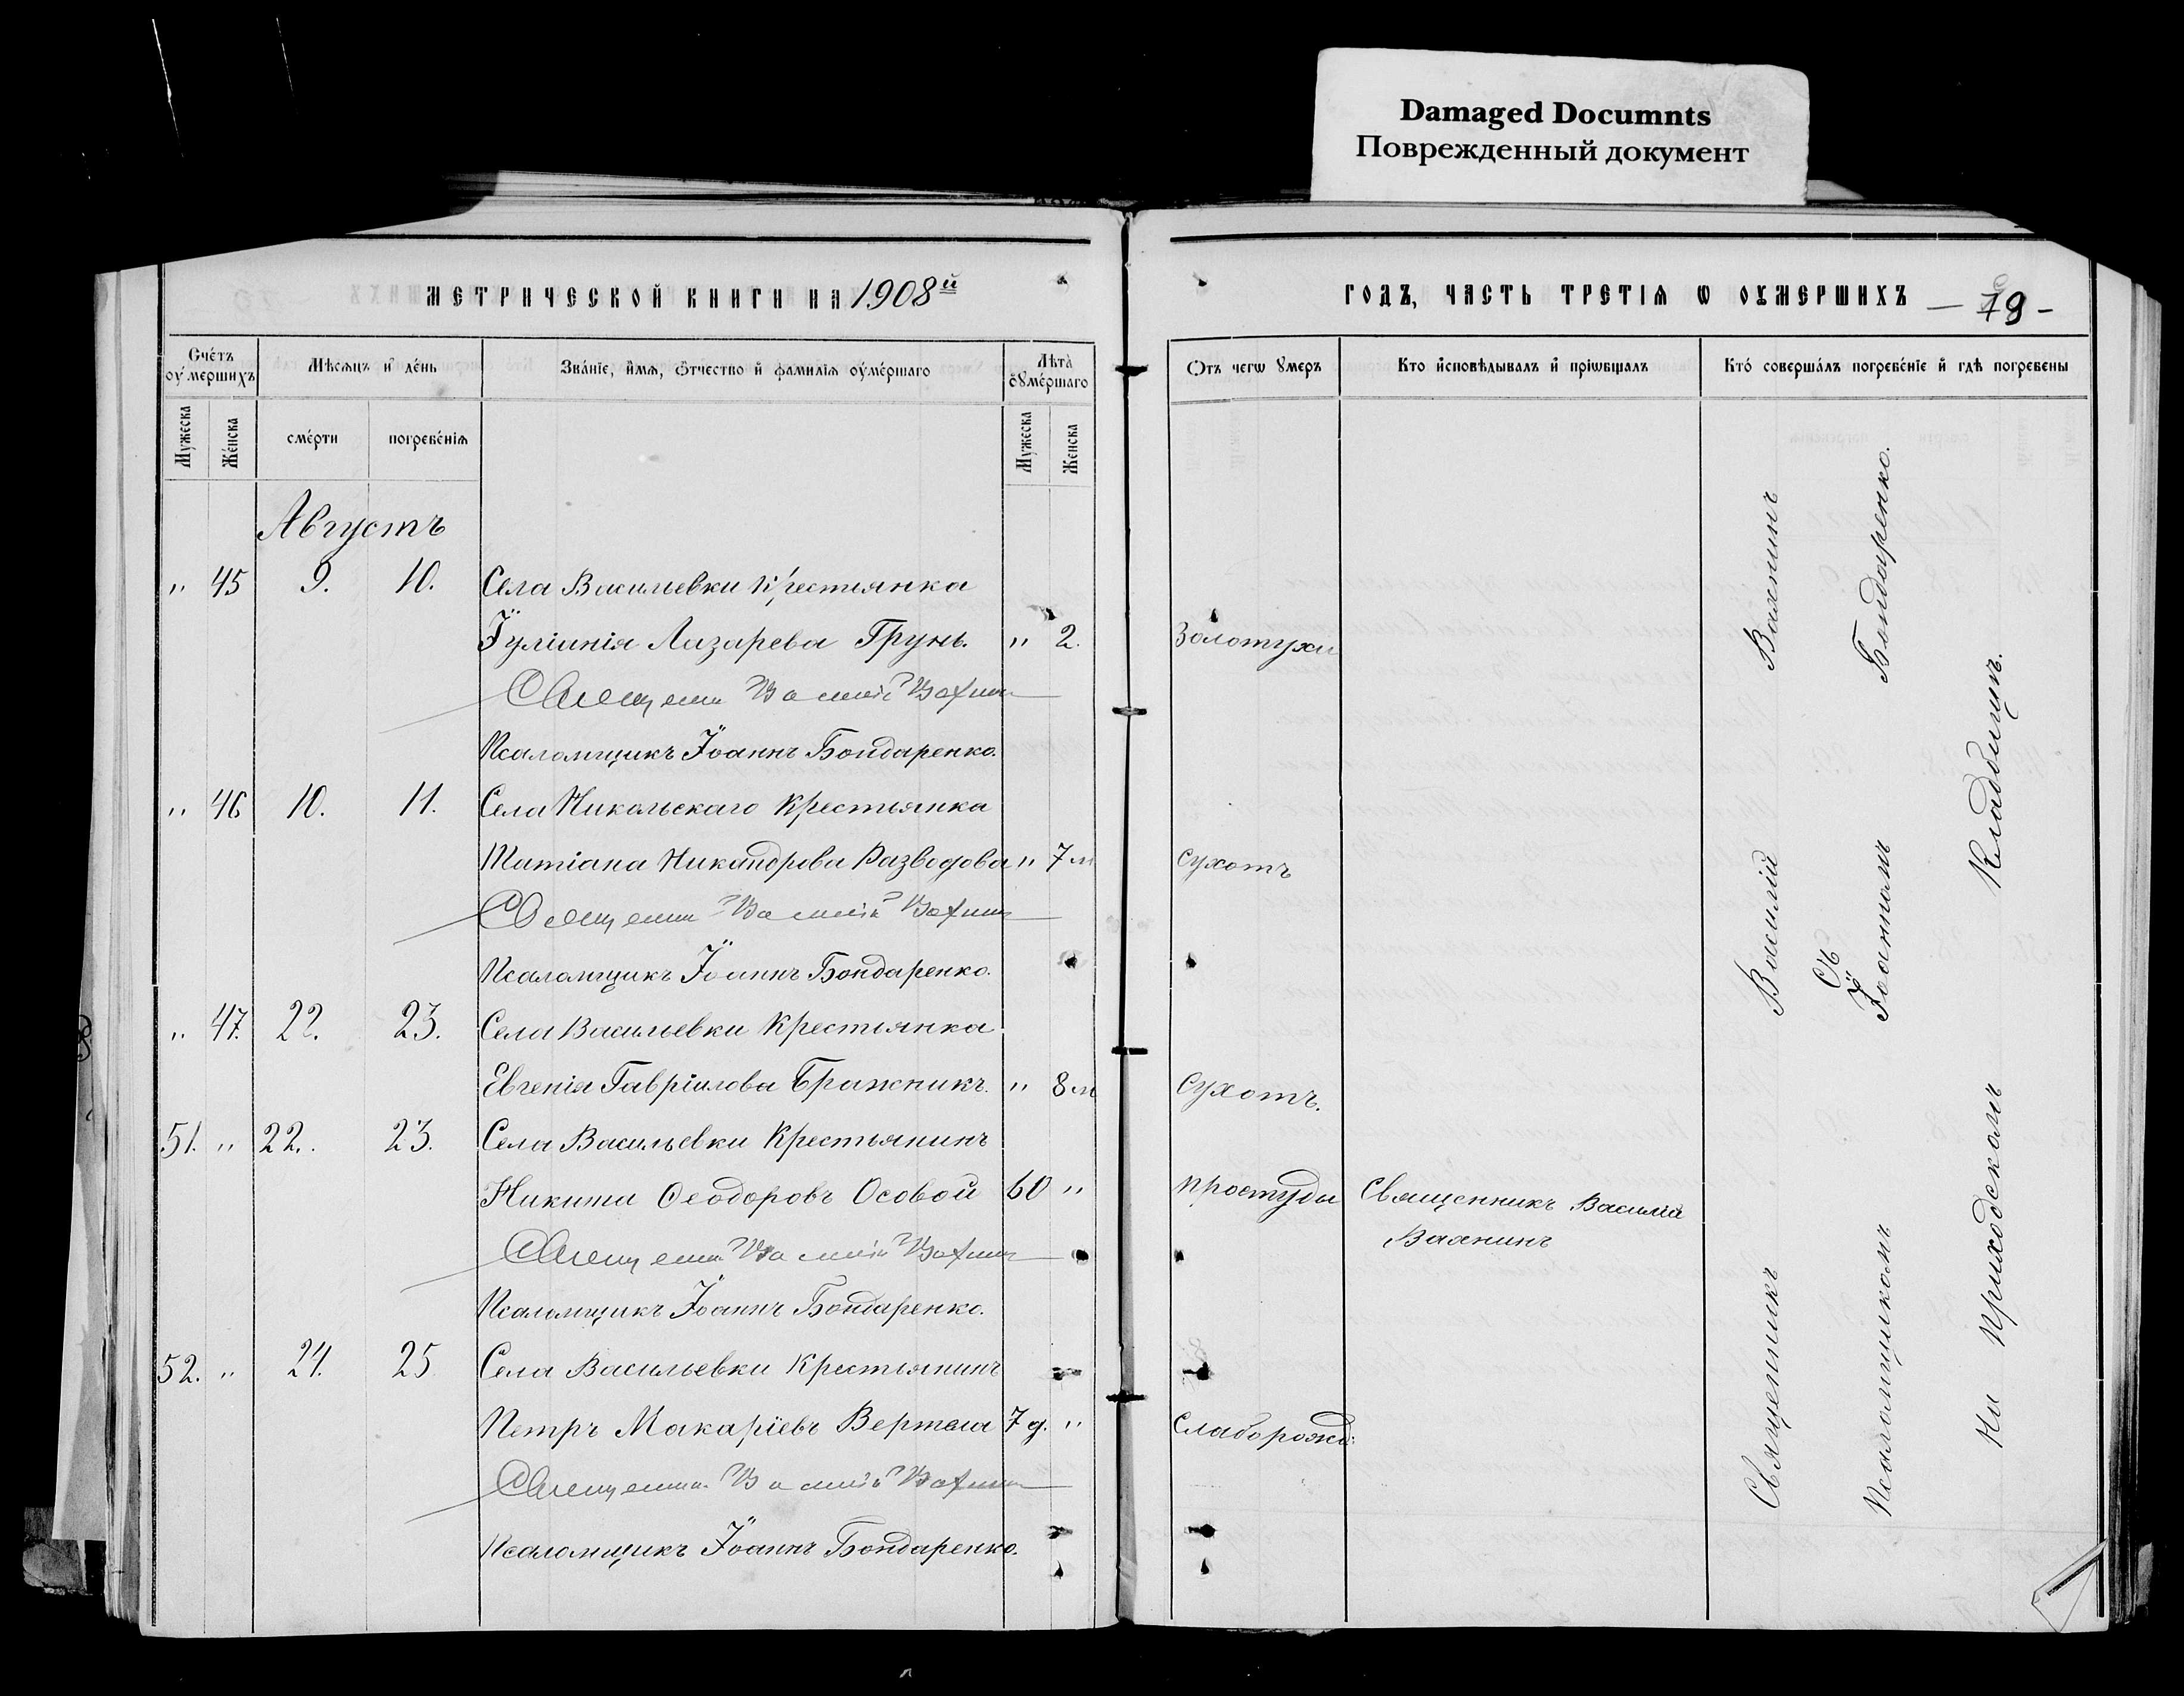 Damaged Documnts
Поврежденный документ
МЕТРИЧЕСКОЙ КНИГИ НА 1908й
ГОДЪ, ЧАСТЬ ТРЕТІѦ Ѡ ОУМЕРШИХЪ — 79 -
Счётъ оумершихъ
Мѣсяцъ и день
Званіе, имя, отчество и фамилія оумершаго
Лѣта оумершаго
Мужеска
Женска
смерти
погребенія
Мужеска
Женска
Отъ чегѡ умеръ
Кто исповѣдывалъ и пріѡбщалъ
Кто совершалъ погребеніе и гдѣ погребены
Августъ
" 45 9. 10. Села Васильевки Крестьянка
Іуліанія Лазарева Грунь. " 2. Золотухи
Священникъ Василій Ваянинъ
Псаломщикъ Іоаннъ Бондаренко.
" 46 10. 11. Села Никольскаго Крестьянка
Татіана Никандрова Разводова " 7 м Сухотъ
Священникъ Василій Ваянинъ
Псаломщикъ Іоаннъ Бондаренко.
" 47. 22. 23. Села Васильевки Крестьянка
Евгенія Гавріилова Бражникъ. " 8 м Сухотъ.
51. " 22. 23. Села Васильевки Крестьянинъ
Никита Ѳеодоровъ Осовой 60 " простуды Священникъ Василій
Ваянинъ
Священникъ Василій Ваянинъ
Псаломщикъ Іоаннъ Бондаренко.
52. " 24. 25 Села Васильевки Крестьянинъ
Петръ Макаріевъ Вертела 7 д. " Слаборожд:
Священникъ Василій Ваянинъ
Псаломщикъ Іоаннъ Бондаренко.
Священникъ Василій Ваянинъ
Съ
Псаломщикомъ Іоанномъ Бондаренко.
На приходскомъ Кладбищѣ.